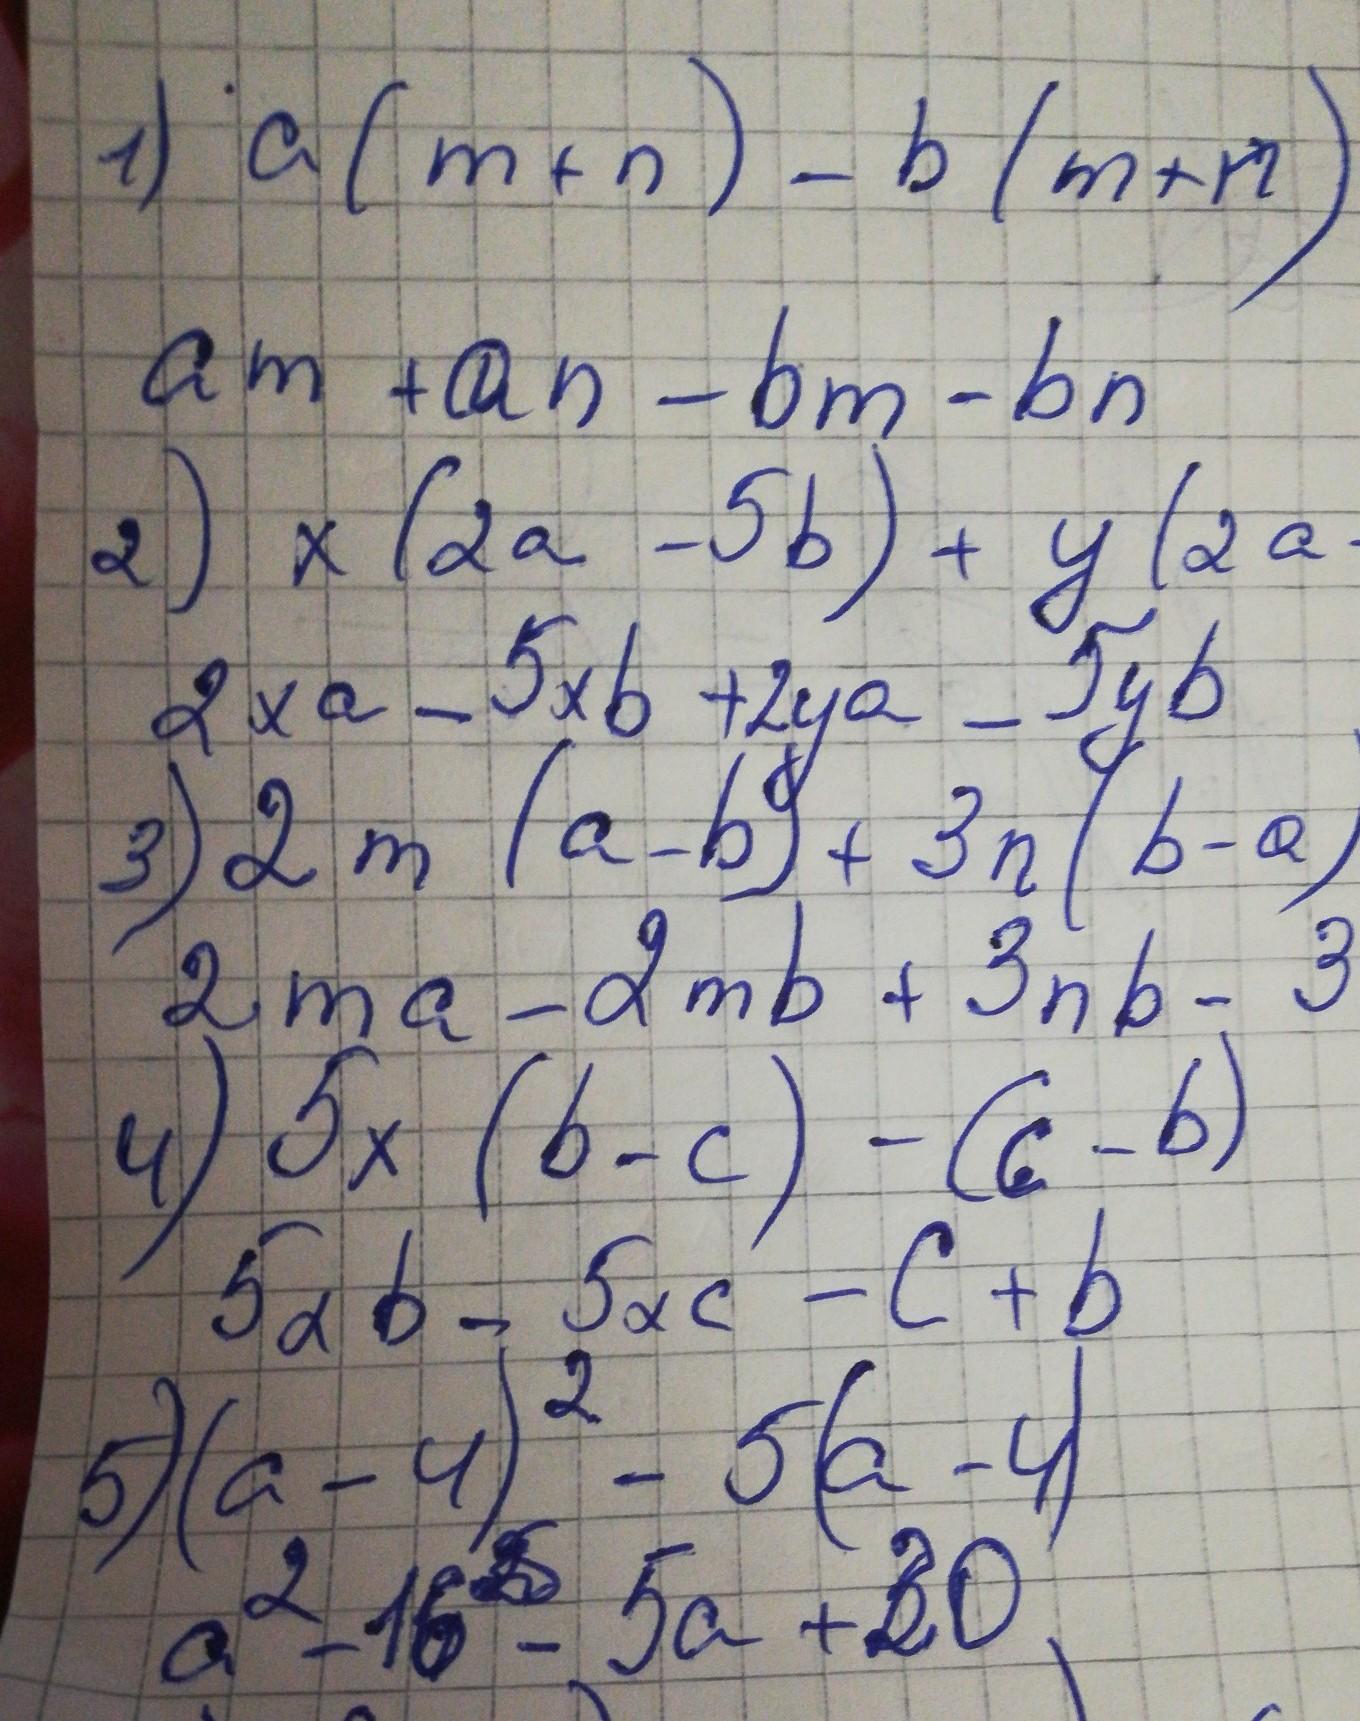 1) a(m+n) - b(m+n)
am + an - bm - bn
2) x(2a - 5b) + y(2a -
2xa - 5xb + 2ya - 5yb
3) 2m(a-b) + 3n(b-a)
2ma - 2mb + 3nb - 3
4) 5x(b-c) - (c-b)
5xb - 5xc - c + b
5) (a-4)² - 5(a-4)
a² - 16 - 5a + 20